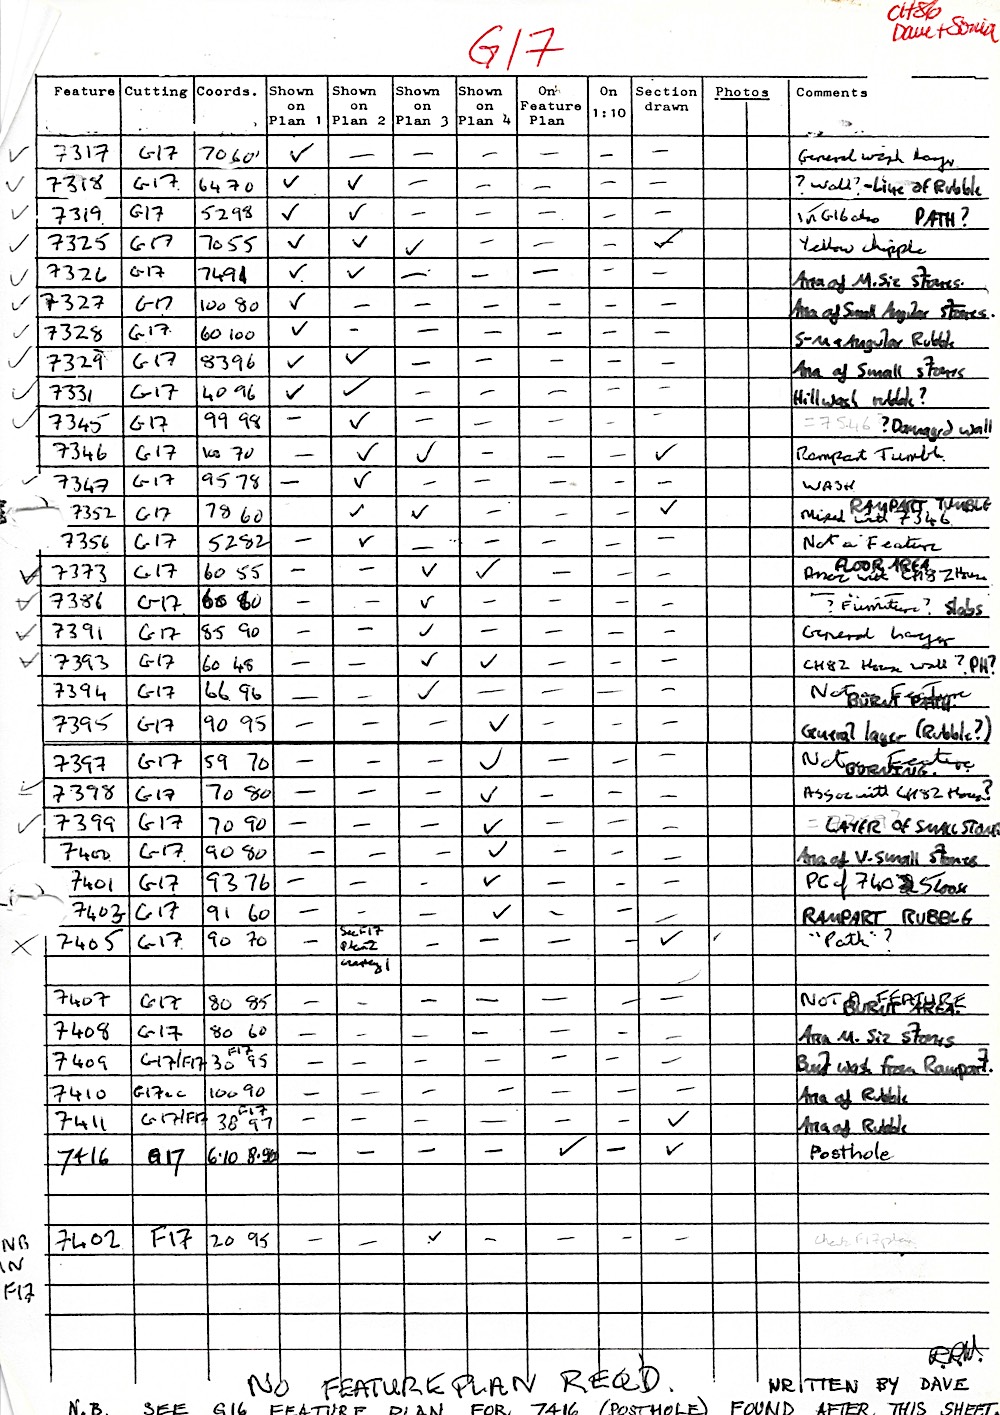 CH86
Dave + Sonia
G17
Feature Cutting Coords. Shown on Plan 1 Shown on Plan 2 Shown on Plan 3 Shown on Plan 4 On Feature Plan On 1:10 Section drawn Photos Comments
✓ 7317 G17 70 60 ✓ — — — — — — General wash layer
✓ 7318 G17 64 70 ✓ ✓ — — — — — ? Wall? - Line of Rubble
✓ 7319 G17 52 98 ✓ ✓ — — — — — in G16 also PATH?
✓ 7325 G17 70 55 ✓ ✓ ✓ — — — ✓ Yellow chipple
✓ 7326 G17 74 91 ✓ ✓ — — — — — Area of M. Siz stones.
✓ 7327 G17 100 80 ✓ — — — — — — Area of Small Angular stones.
✓ 7328 G17 60 100 ✓ — — — — — — S-M Angular Rubble
✓ 7329 G17 83 96 ✓ ✓ — — — — — Area of Small stones
✓ 7331 G17 40 96 ✓ ✓ — — — — — Hillwash rubble?
✓ 7345 G17 99 98 — ✓ — — — — — = 7346 ? Damaged wall
7346 G17 100 70 — ✓ ✓ — — — ✓ Rampart Tumble
✓ 7347 G17 95 78 — ✓ — — — — — WASH
7352 G17 78 60 ✓ ✓ — — — ✓ RAMPART TUMBLE Mixed with 7346
7356 G17 52 82 — ✓ — — — — — Not a Feature
✓ 7373 G17 60 55 — — ✓ ✓ — — — FLOOR AREA Assoc with CH82 House
7386 G17 60 — — ✓ — — — — ? Furniture? slabs
✓ 7391 G17 85 90 — — ✓ — — — — General Layer
✓ 7393 G17 60 48 — — ✓ ✓ — — — CH82 House wall? PH?
7394 G17 66 96 — — ✓ — — — — Not a Feature BURNT PATH.
7395 G17 90 95 — — — ✓ — — — General layer (Rubble?)
7397 G17 59 70 — — — ✓ — — — Not a Feature BURNING.
✓ 7398 G17 70 80 — — — ✓ — — — Assoc with CH82 House?
✓ 7399 G17 70 90 — — — ✓ — — — LAYER OF SMALL STONES
7400 G17 90 80 — — — ✓ — — — Area of V. Small stones
7401 G17 93 76 — — — ✓ — — — PC of 740 Loose
7403 G17 91 60 — — — ✓ — — — RAMPART RUBBLE
X 7405 G17 90 70 — See F17 Plan 2 — — — — ✓ "Path"?
7407 G17 80 85 — — — — — — — NOT A FEATURE BURNT AREA.
7408 G17 80 60 — — — — — — — Area M. Siz stones
7409 G17/F17 30 F17 95 — — — — — — — Burnt wash from Rampart?
7410 G17 100 90 — — — — — — — Area of Rubble
7411 G17/F17 38 F17 97 — — — — — — ✓ Area of Rubble
7416 G17 6.10 8.90 — — — — ✓ — ✓ Posthole
NB IN F17 7402 F17 20 95 — — ✓ — — — — check F17 plan
R.P.W.
NO FEATURE PLAN REQ'D. WRITTEN BY DAVE
N.B. SEE G16 FEATURE PLAN FOR 7416 (POSTHOLE) FOUND AFTER THIS SHEET.